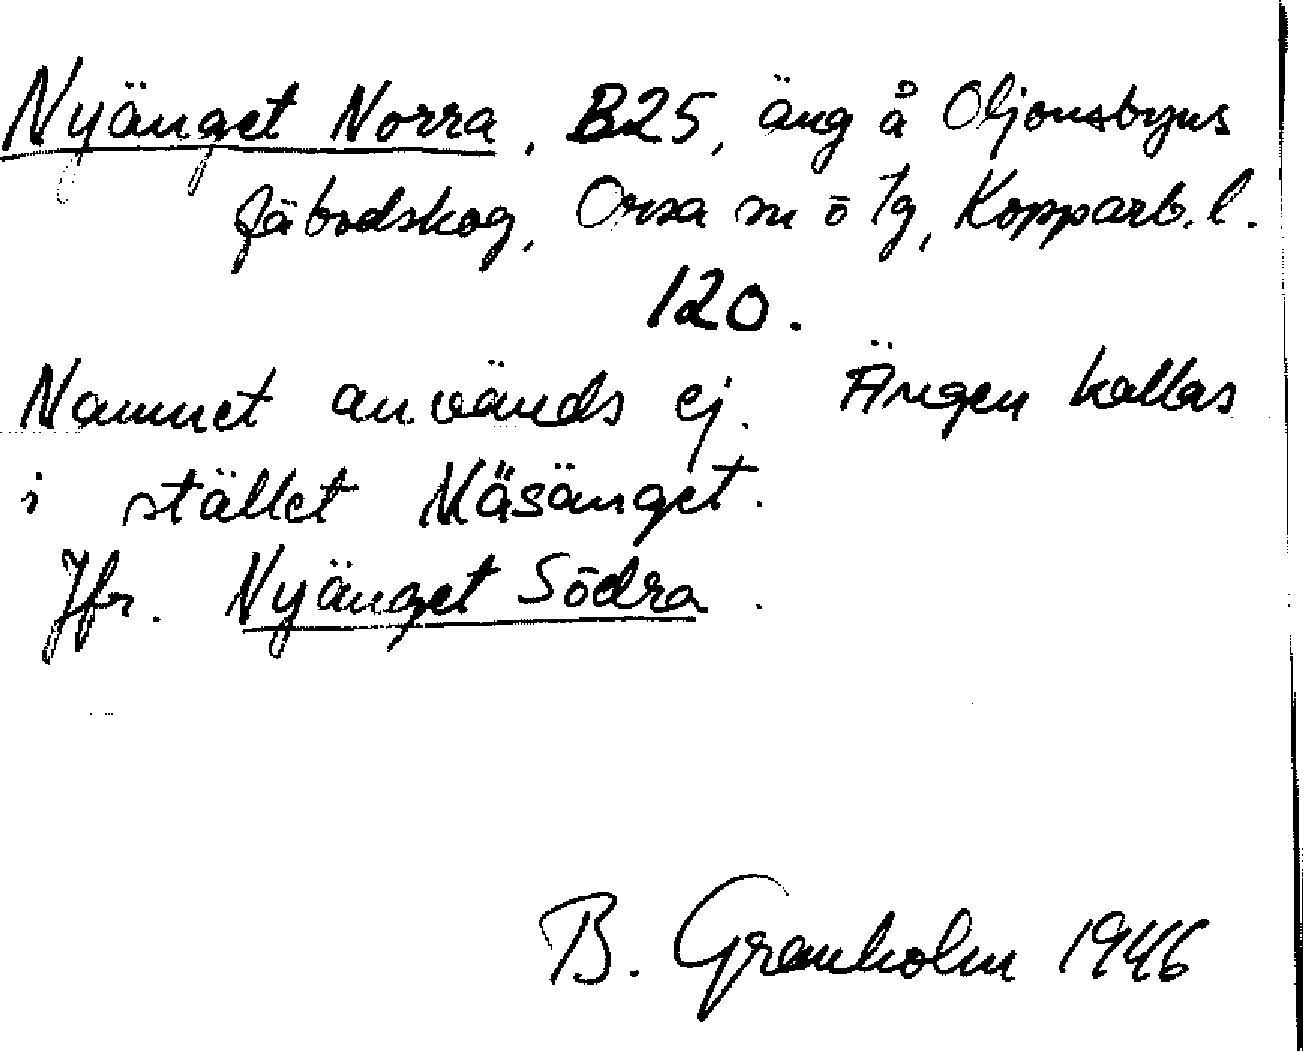 Nyänget Norra, B25, äng å Oljonsbyns
fäbodskog, Orsa sn o tg, Kopparb. l.
120.
Namnet används ej. Ängen kallas
i stället Näsänget.
Jfr. Nyänget Södra.
B. Granholm 1946